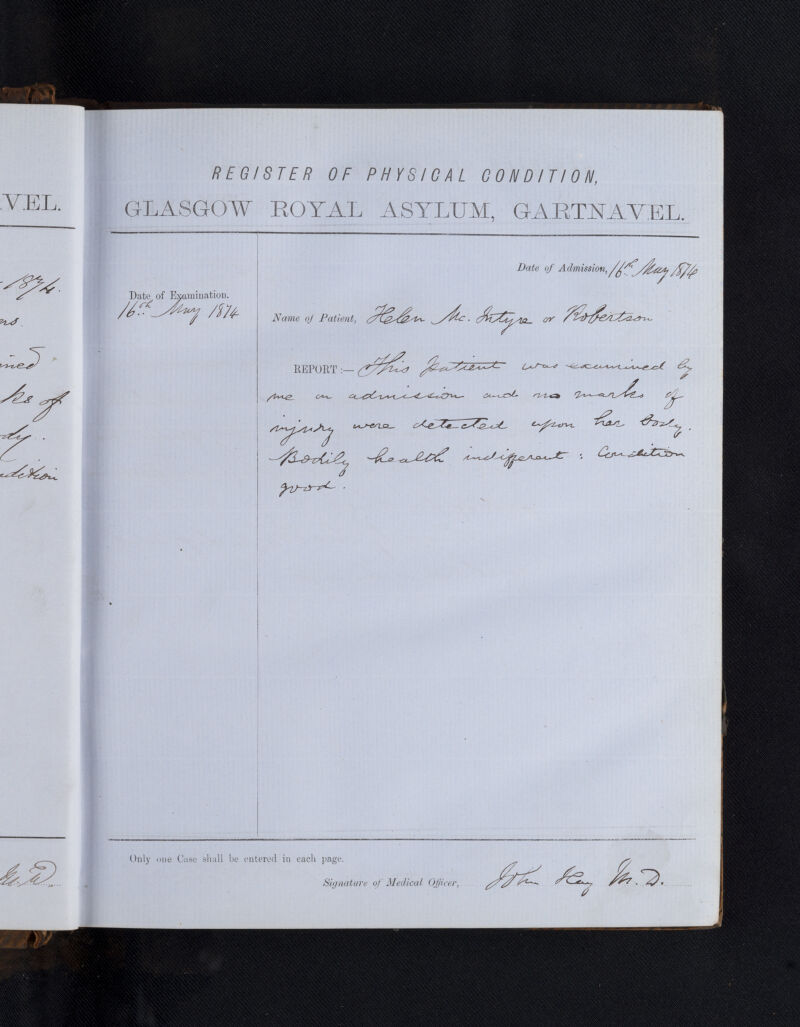 VEL.
1874.
ined
ks of
dy.
ndition
M.D.
REGISTER OF PHYSICAL CONDITION,
GLASGOW ROYAL ASYLUM, GARTNAVEL.
Date of Admission, 16th May 1874
Date of Examination.
16th May 1874
Name of Patient, Helen Mc. Intyre or Robertson
REPORT:— This patient was examined by
me on admission and no marks of
injury were detected upon her body.
Bodily health indifferent: Condition
good.
Only one Case shall be entered in each page.
Signature of Medical Officer, John Kay M.D.